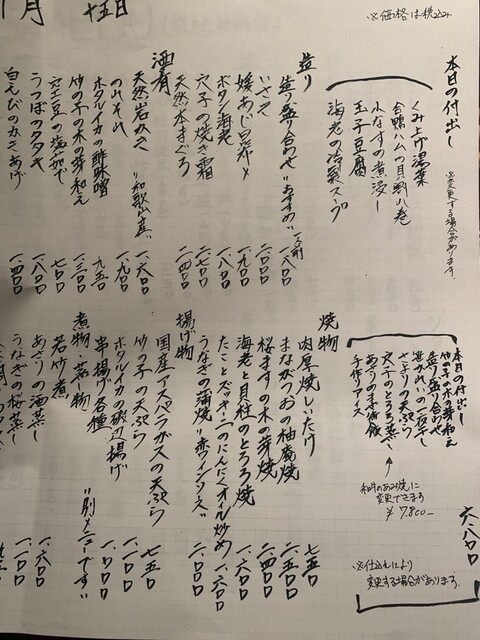 月 十五日
※価格は税込み
本日の付出し ※変更する場合があります。
くみ上げ湯葉
合鴨ハムの貝割れ巻
小なすの煮浸し
玉子豆腐
海老の冷製スープ
造り
造り盛り合わせ “おすすめ” 一人前 一、八〇〇
いさき 二、〇〇〇
媛あじ 一、九〇〇
ボタン海老
穴子の焼き霜 二、七〇〇
天然本まぐろ 二、四〇〇
酒肴
天然岩がき “和歌山直” 一、六〇〇
のれそれ 一、九〇〇
ホタルイカの酢味噌 九五〇
竹の子の木の芽和え 一、三〇〇
空豆の塩茹で 七〇〇
うつぼのタタキ 一、八〇〇
白えびのかきあげ 一、四〇〇
本日の付出し
竹の子の木の芽和え
造り盛り合わせ
笹がれいの一夜干し
さよりの天ぷら
穴子のとろろ蒸し
あさりのまぜ御飯
手作りアイス
六、八〇〇
和牛のあみ焼に
変更できます
¥7,800-
※仕込みにより
変更する場合があります。
焼物
肉厚焼しいたけ 七五〇
まながつおの柚庵焼 二、五〇〇
桜ますの木の芽焼 二、四〇〇
海老と貝柱のとろろ焼 一、六〇〇
たことズッキーニのにんにくオイル炒め 一、六〇〇
うなぎの蒲焼 “赤ワインソース” 二、〇〇〇
揚げ物
国産アスパラガスの天ぷら 七五〇
竹の子の天ぷら 一、二〇〇
ホタルイカの磯辺揚げ 一、〇〇〇
串揚げ各種 “別メニューです”
煮物・蒸し物
若竹煮 一、六〇〇
あさりの酒蒸し 一、一〇〇
うなぎの桜蒸し